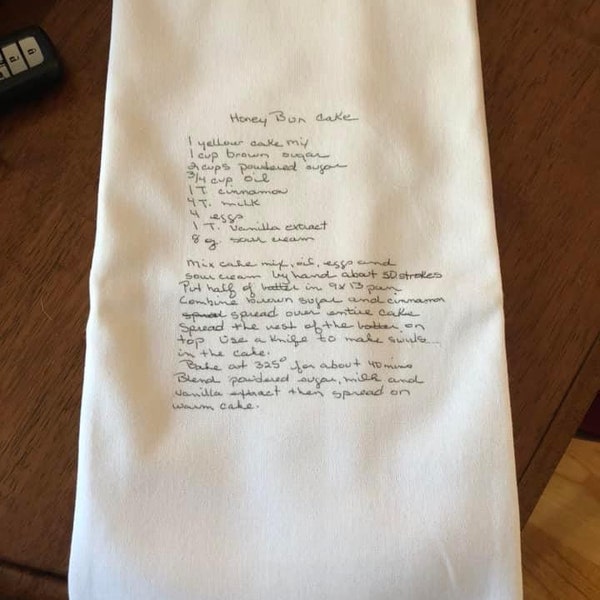 Honey Bun Cake
1 yellow cake mix
1 cup brown sugar
2 cups powdered sugar
3/4 cup oil
1 T. cinnamon
4 T. milk
4 eggs
1 T. Vanilla extract
8 oz. sour cream
Mix cake mix, oil, eggs and
sour cream by hand about 50 strokes
Put half of batter in 9x13 pan
Combine brown sugar and cinnamon
spread spread over entire cake
Spread the rest of the batter, on
top. Use a knife to make swirls...
in the cake.
Bake at 325° for about 40 mins
Blend powdered sugar, milk and
vanilla extract then spread on
warm cake.